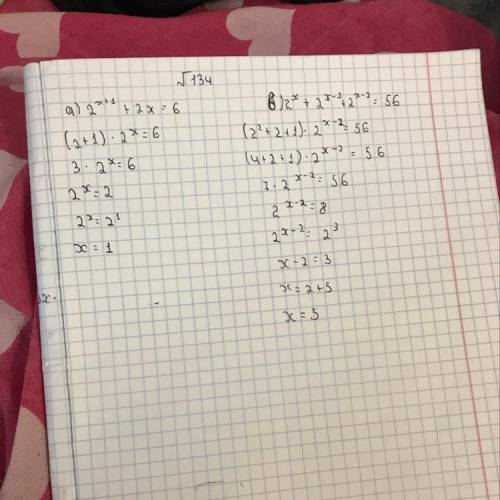 √134
а) 2^{x+1} + 2x = 6
(2+1) · 2^x = 6
3 · 2^x = 6
2^x = 2
2^x = 2^1
x = 1
в) 2^x + 2^{x-1} + 2^{x-2} = 56
(2^2 + 2 + 1) · 2^{x-2} = 56
(4 + 2 + 1) · 2^{x-2} = 56
7 · 2^{x-2} = 56
2^{x-2} = 8
2^{x-2} = 2^3
x - 2 = 3
x = 2 + 3
x = 5